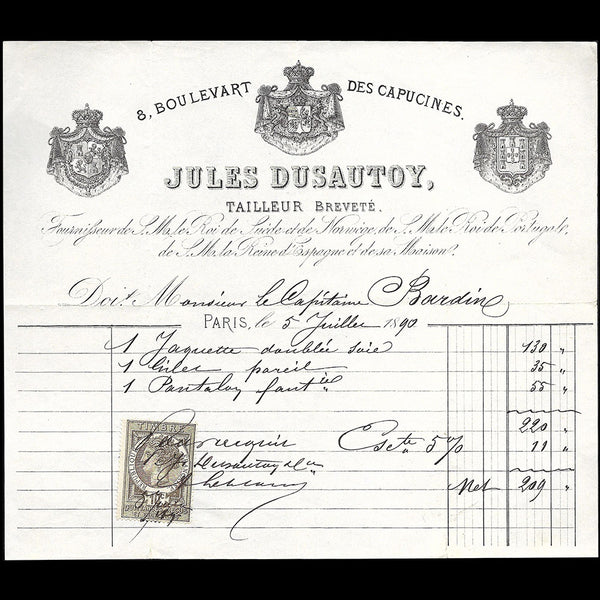 8, BOULEVART DES CAPUCINES.
JULES DUSAUTOY,
TAILLEUR BREVETÉ.
Fournisseur de S.M. le Roi de Suède et de Norwège, de S.M. le Roi de Portugal,
de S.M. la Reine d'Espagne et de sa Maison.
Doit Monsieur le Capitaine Bardin
PARIS, le 5 Juillet 1890
1 Jaquette doublée soie 130 "
1 Gilet pareil 35 "
1 Pantalon fant ie 55 "
220 "
TIMBRE
Pour acquit Escte 5% 11 "
Dusautoy
Net 209 "